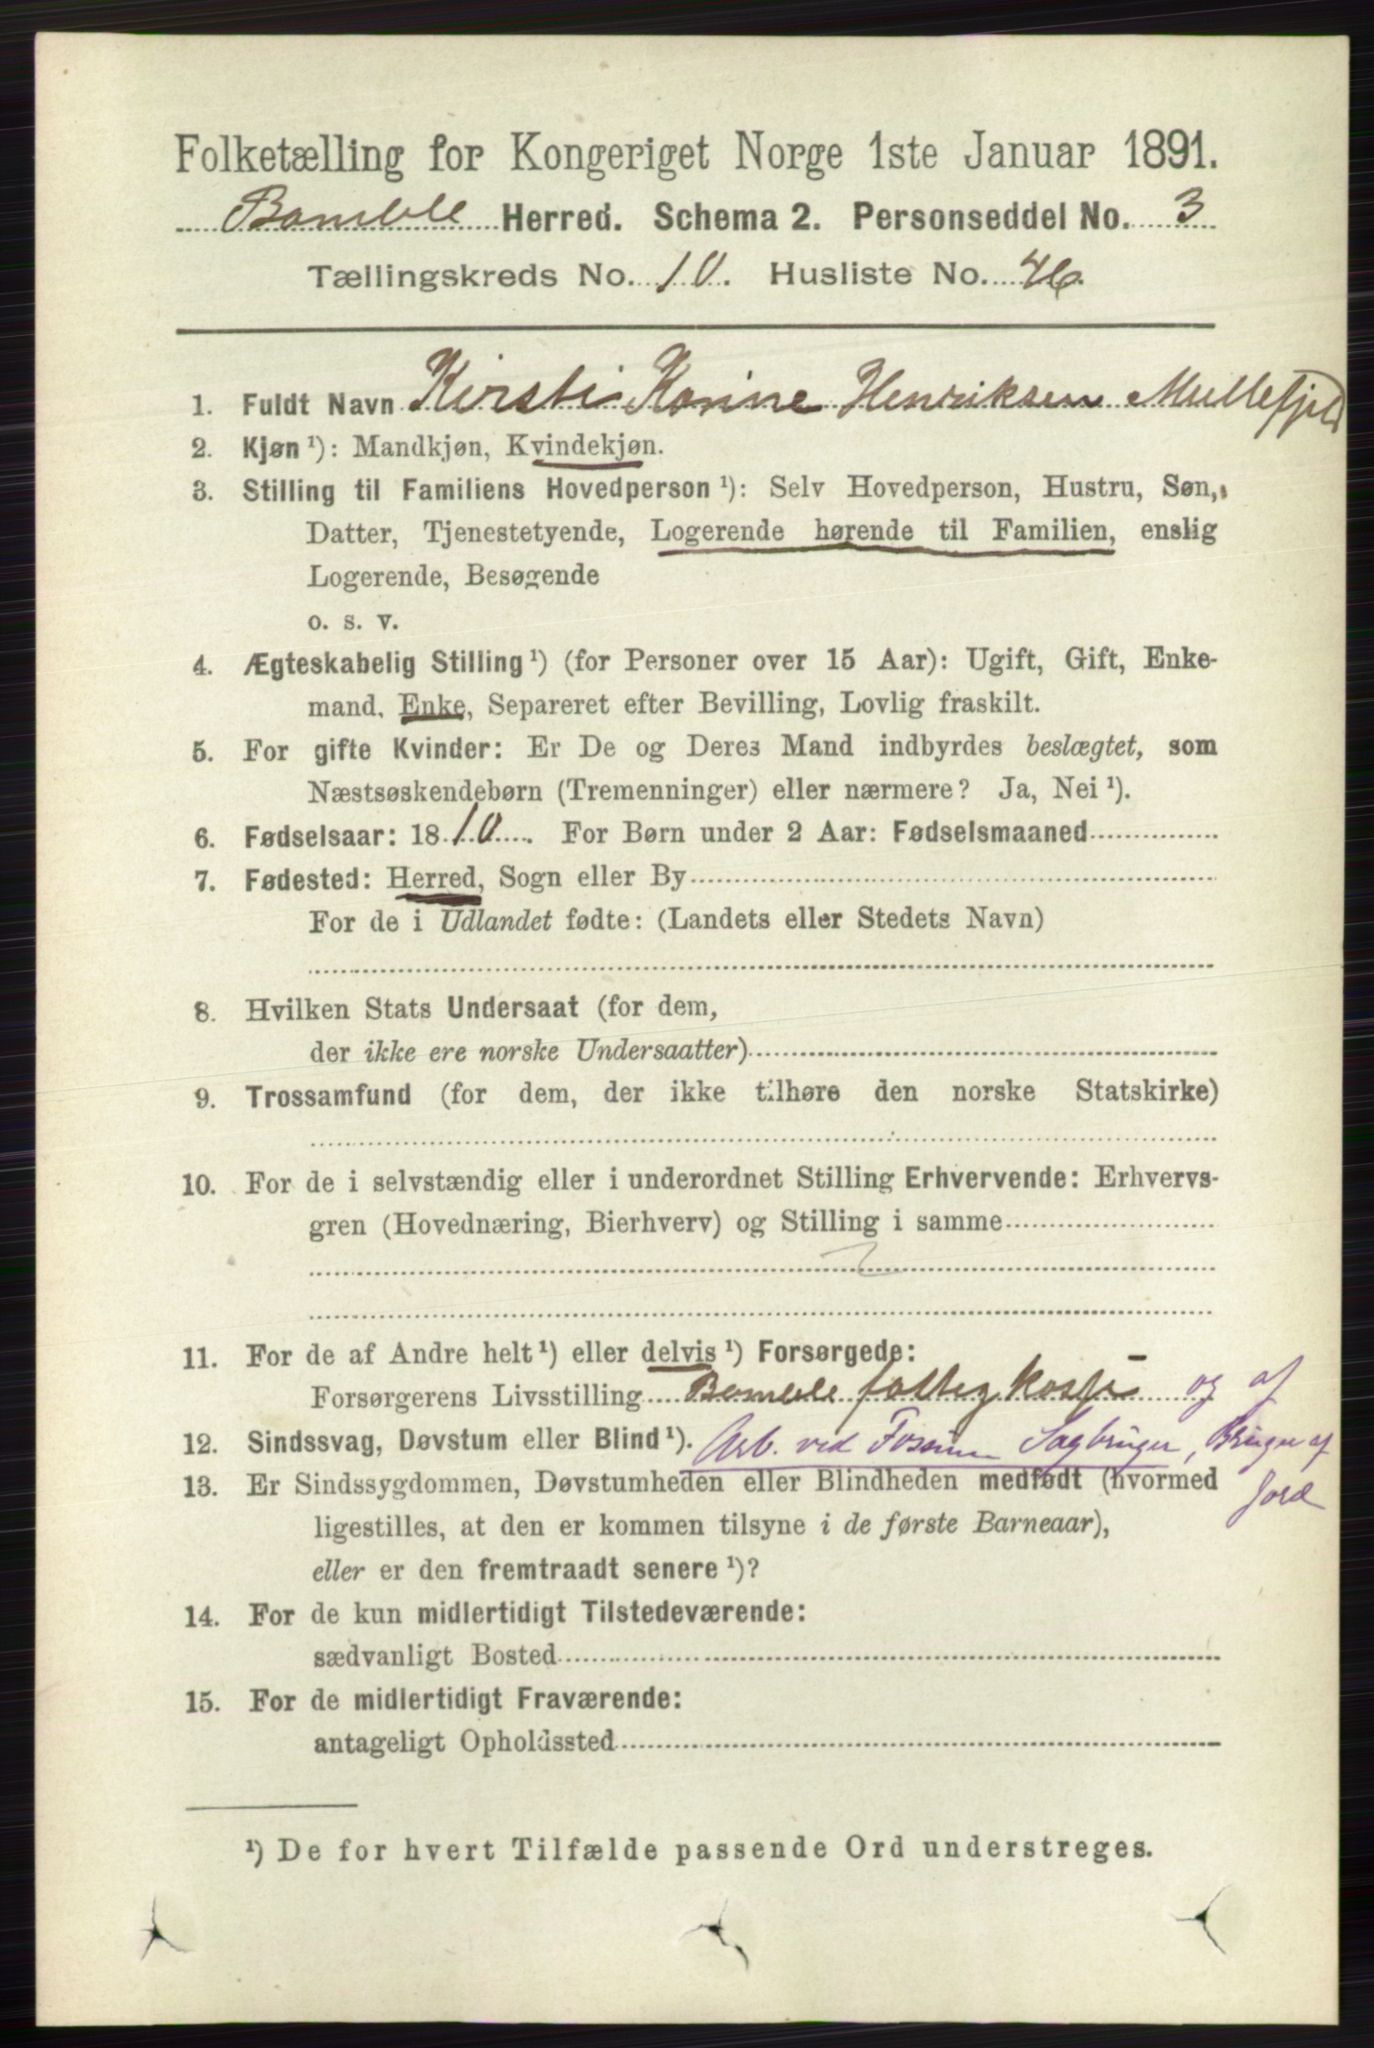 Folketælling for Kongeriget Norge 1ste Januar 1891.
Bamble Herred. Schema 2. Personseddel No. 3
Tællingskreds No. 10. Husliste No. 46.
1. Fuldt Navn Kirsti Karine Henriksen Mullefjeld
2. Kjøn ¹): Mandkjøn, Kvindekjøn.
3. Stilling til Familiens Hovedperson ¹): Selv Hovedperson, Hustru, Søn,
Datter, Tjenestetyende, Logerende hørende til Familien, enslig
Logerende, Besøgende
o. s. v.
4. Ægteskabelig Stilling ¹) (for Personer over 15 Aar): Ugift, Gift, Enke-
mand, Enke, Separeret efter Bevilling, Lovlig fraskilt.
5. For gifte Kvinder: Er De og Deres Mand indbyrdes beslægtet, som
Næstsøskendebørn (Tremenninger) eller nærmere? Ja, Nei ¹).
6. Fødselsaar: 1810. For Børn under 2 Aar: Fødselsmaaned
7. Fødested: Herred, Sogn eller By
For de i Udlandet fødte: (Landets eller Stedets Navn)
8. Hvilken Stats Undersaat (for dem,
der ikke ere norske Undersaatter)
9. Trossamfund (for dem, der ikke tilhøre den norske Statskirke)
10. For de i selvstændig eller i underordnet Stilling Erhvervende: Erhvervs-
gren (Hovednæring, Bierhverv) og Stilling i samme
11. For de af Andre helt ¹) eller delvis ¹) Forsørgede:
Forsørgerens Livsstilling Bamble og af
12. Sindssvag, Døvstum eller Blind ¹). Arb. ved Fossum Sagbruger, Bruger af
13. Er Sindssygdommen, Døvstumheden eller Blindheden medfødt (hvormed Jord
ligestilles, at den er kommen tilsyne i de første Barneaar),
eller er den fremtraadt senere ¹)?
14. For de kun midlertidigt Tilstedeværende:
sædvanligt Bosted
15. For de midlertidigt Fraværende:
antageligt Opholdssted
¹) De for hvert Tilfælde passende Ord understreges.